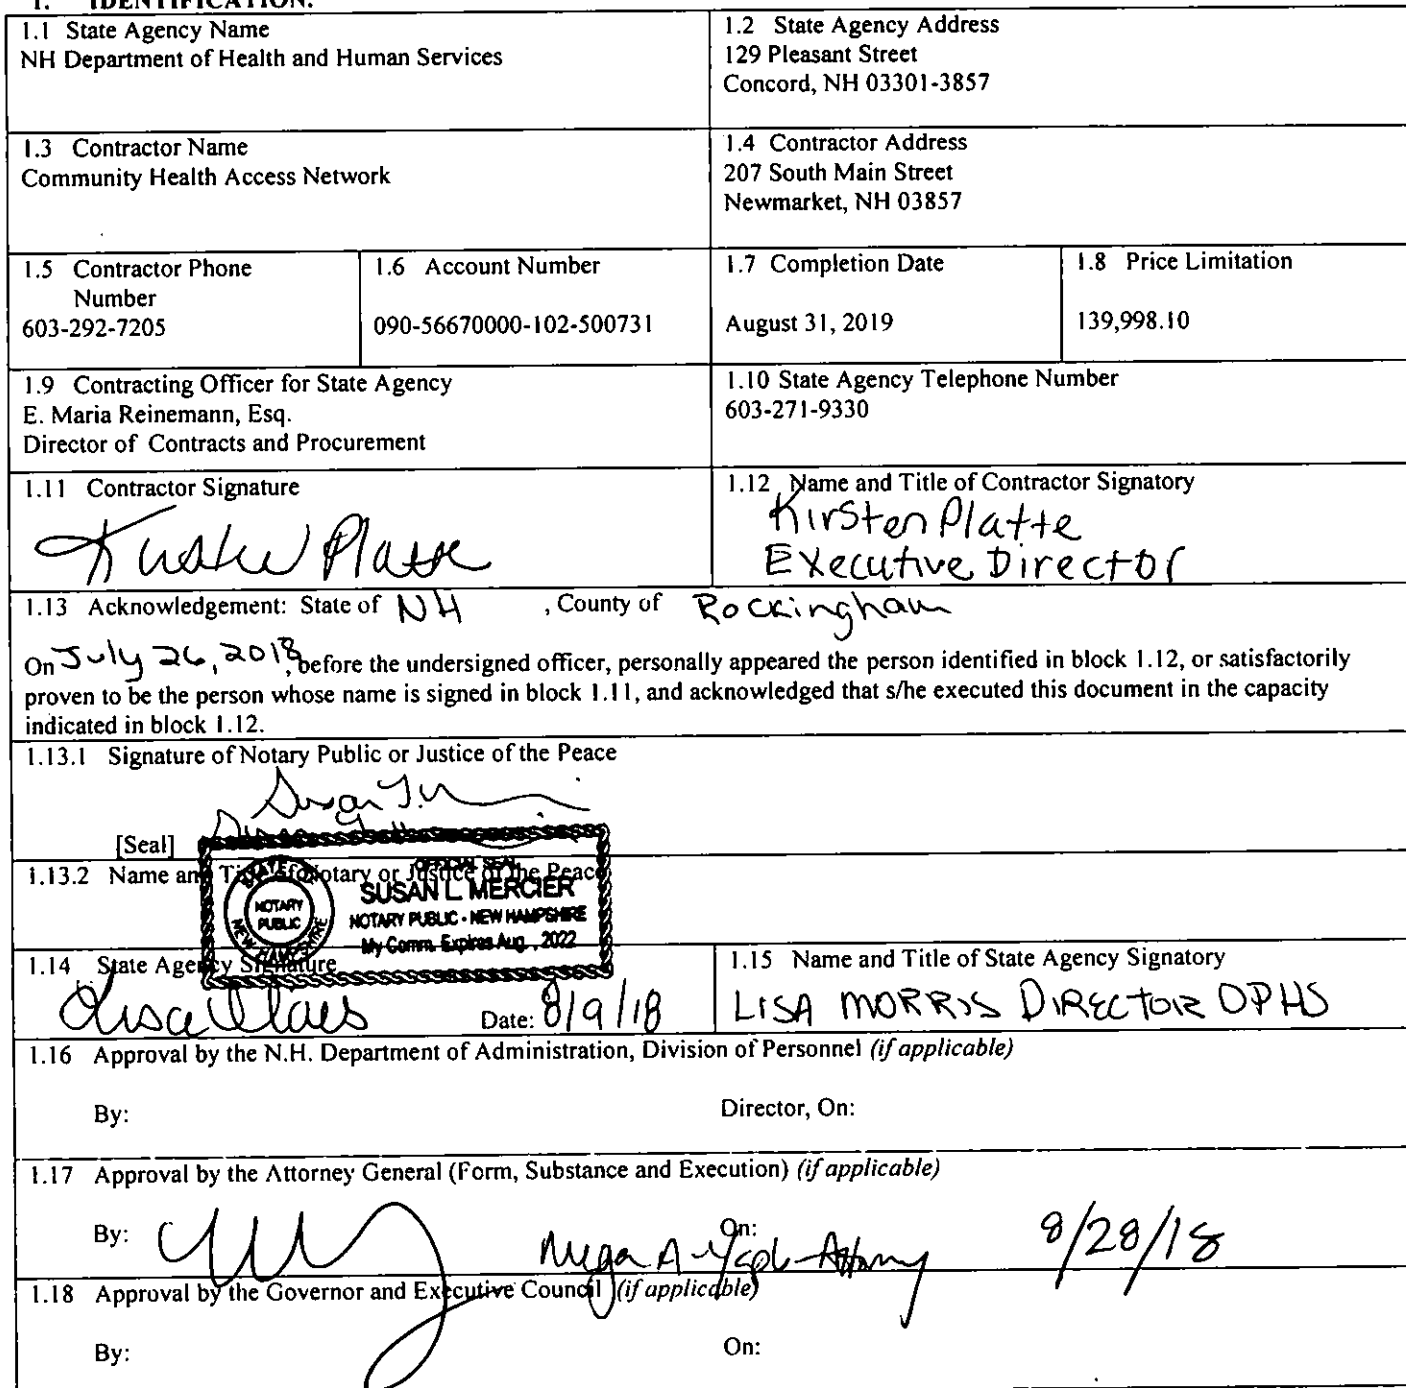 1. IDENTIFICATION.
1.1 State Agency Name
NH Department of Health and Human Services
1.2 State Agency Address
129 Pleasant Street
Concord, NH 03301-3857
1.3 Contractor Name
Community Health Access Network
1.4 Contractor Address
207 South Main Street
Newmarket, NH 03857
1.5 Contractor Phone
Number
603-292-7205
1.6 Account Number
090-56670000-102-500731
1.7 Completion Date
August 31, 2019
1.8 Price Limitation
139,998.10
1.9 Contracting Officer for State Agency
E. Maria Reinemann, Esq.
Director of Contracts and Procurement
1.10 State Agency Telephone Number
603-271-9330
1.11 Contractor Signature
Kirsten Platte
1.12 Name and Title of Contractor Signatory
Kirsten Platte
Executive Director
1.13 Acknowledgement: State of NH , County of Rockingham
On July 26, 2018, before the undersigned officer, personally appeared the person identified in block 1.12, or satisfactorily
proven to be the person whose name is signed in block 1.11, and acknowledged that s/he executed this document in the capacity
indicated in block 1.12.
1.13.1 Signature of Notary Public or Justice of the Peace
Susan
[Seal]
1.13.2 Name and Title of Notary or Justice of the Peace
STATE OF NEW HAMPSHIRE
NOTARY
PUBLIC
OFFICIAL SEAL
SUSAN L. MERCIER
NOTARY PUBLIC - NEW HAMPSHIRE
My Comm. Expires Aug. , 2022
1.14 State Agency Signature
Date: 8/9/18
1.15 Name and Title of State Agency Signatory
LISA MORRIS DIRECTOR DPHS
1.16 Approval by the N.H. Department of Administration, Division of Personnel (if applicable)
By: Director, On:
1.17 Approval by the Attorney General (Form, Substance and Execution) (if applicable)
By: On: 8/28/18
Megan A. - Attorney
1.18 Approval by the Governor and Executive Council (if applicable)
By: On: